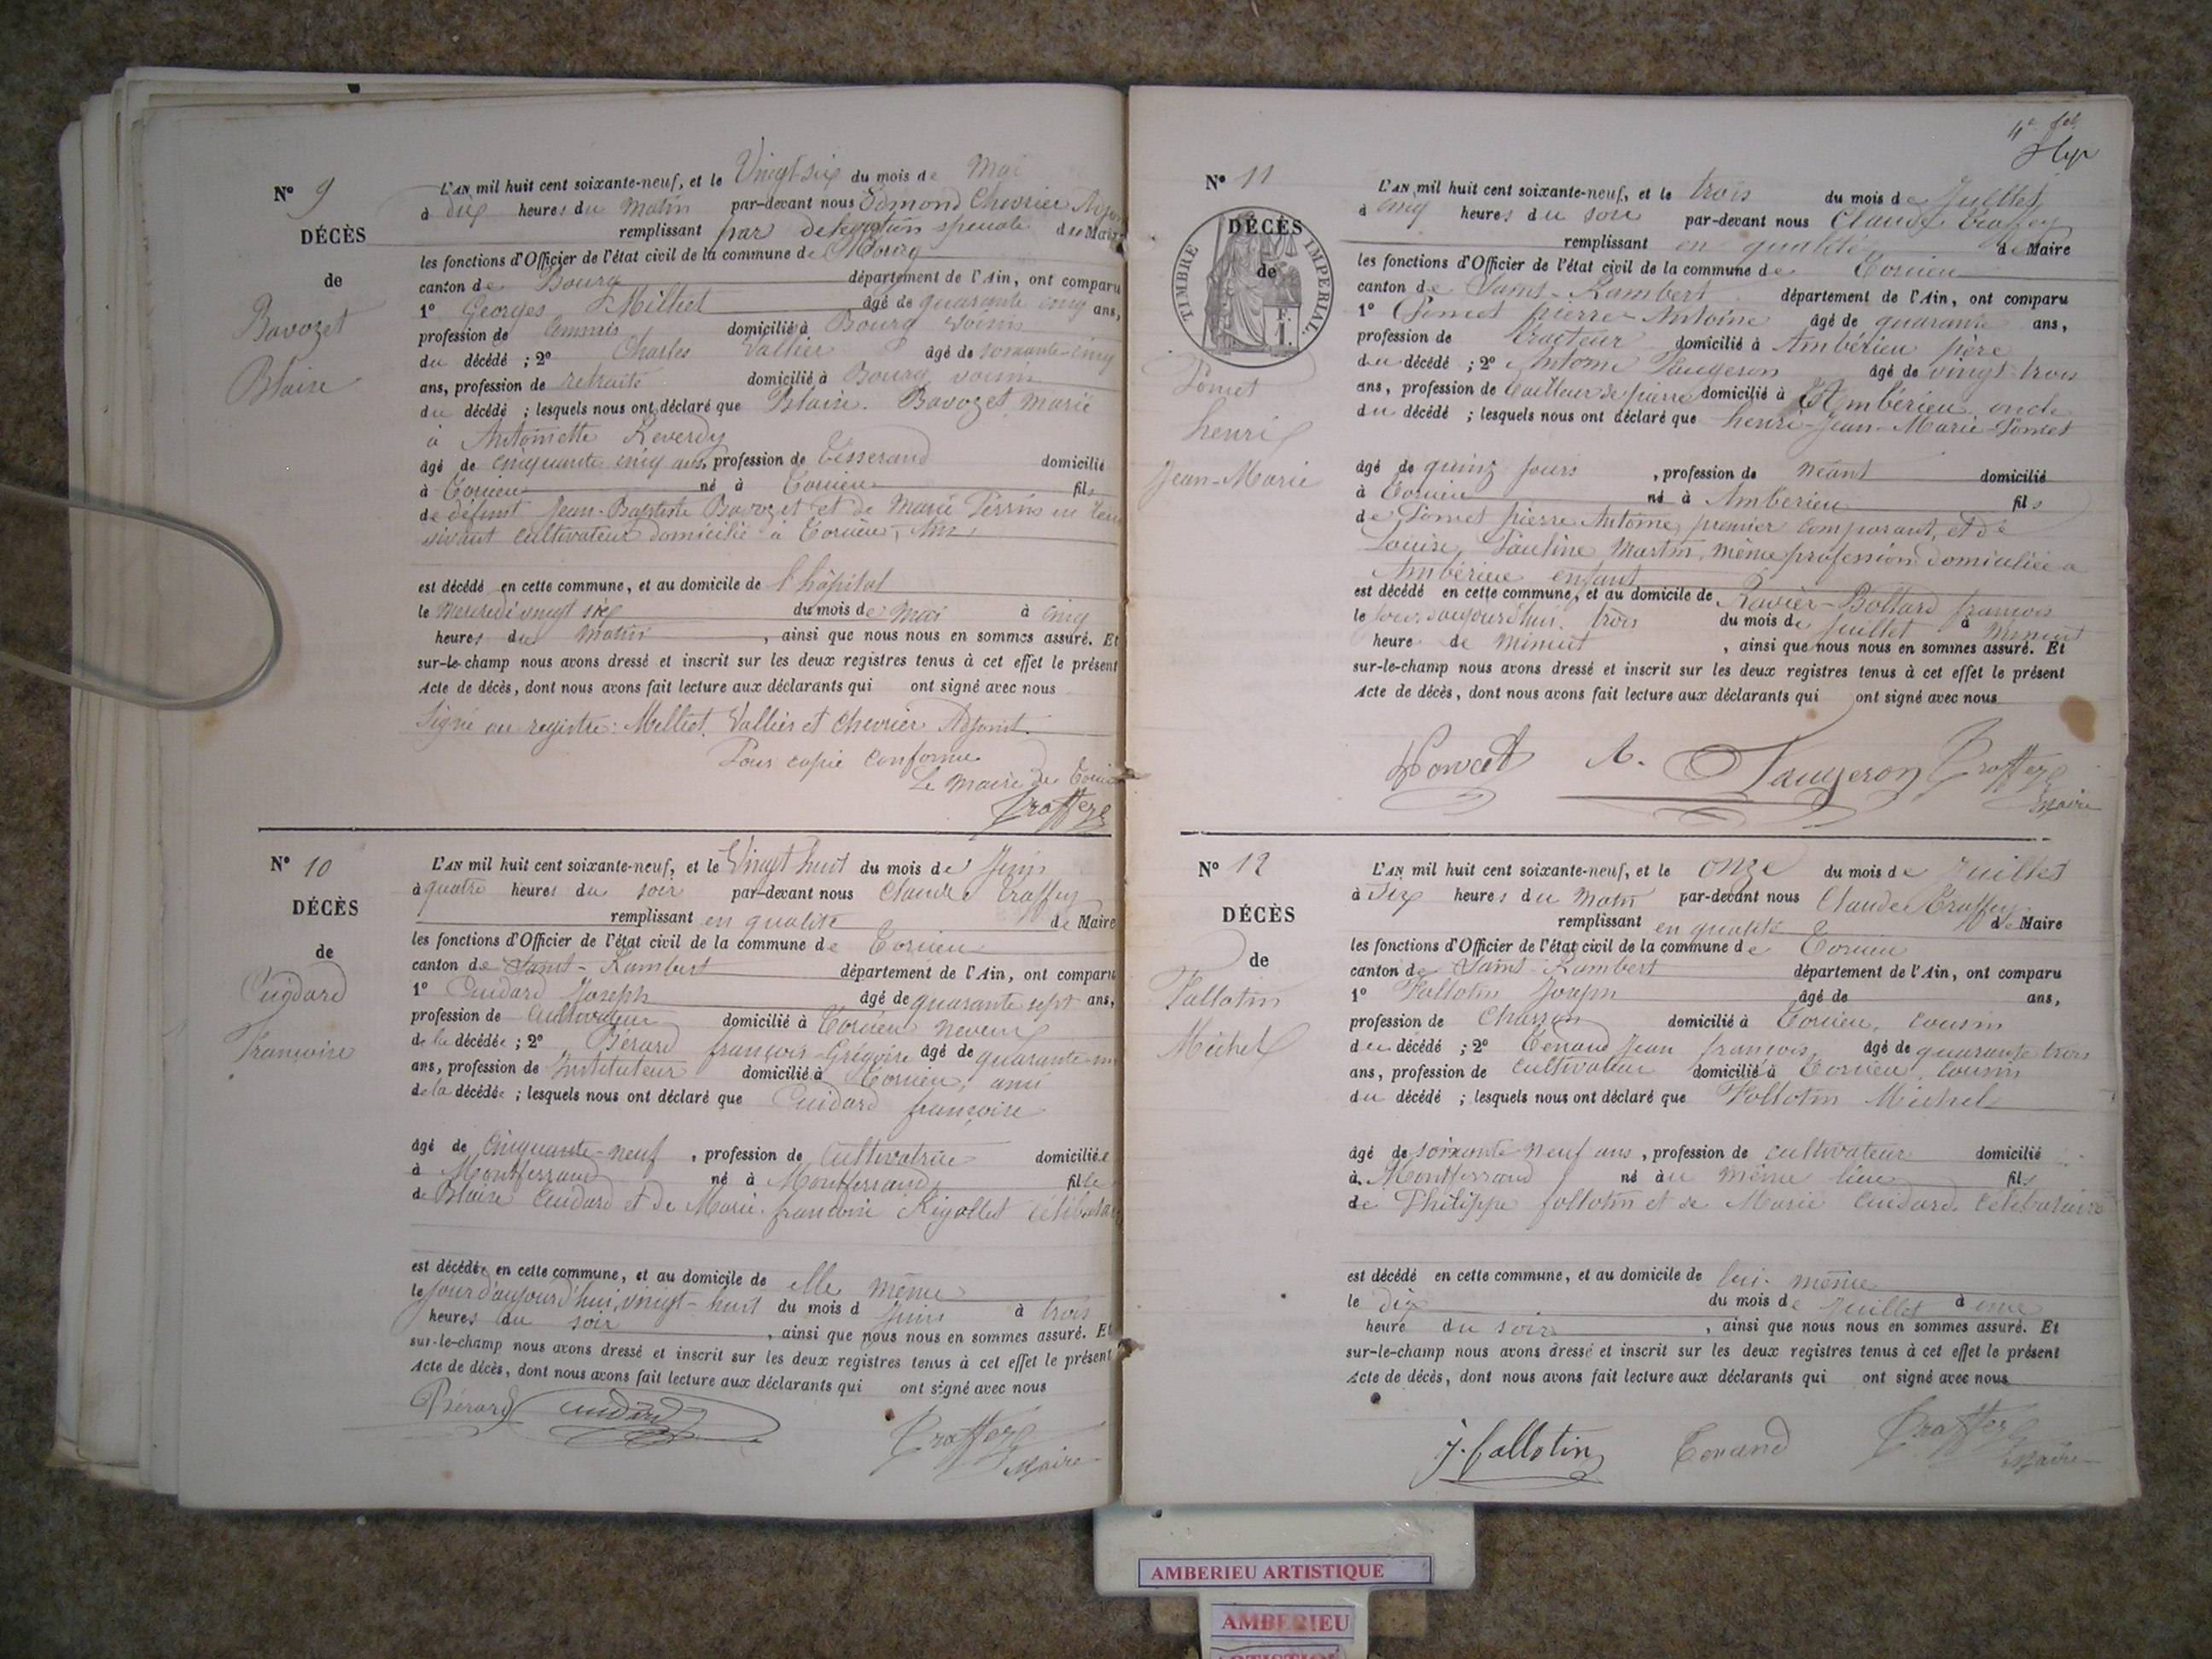 N° 9
DÉCÈS
de
Bavozet
Blaise
L'AN mil huit cent soixante-neuf, et le Vingt-six du mois de Mai
à dix heures du Matin par-devant nous Edmond Chevrier
remplissant par délégation spéciale du Maire
les fonctions d'Officier de l'état civil de la commune de Bourg
canton de Bourg département de l'Ain, ont comparu
1° Georges Milliet âgé de quarante cinq ans,
profession de Commis domicilié à Bourg voisin
du décédé ; 2° Charles Vallier âgé de soixante-cinq
ans, profession de retraité domicilié à Bourg voisin
du décédé ; lesquels nous ont déclaré que Blaise Bavozet marié
à Antoinette Reverdy
âgé de cinquante cinq ans, profession de Tisserand domicilié
à Torcieu né à Torcieu fils
de défunt Jean-Baptiste Bavozet et de Marie Perrin
vivant cultivateur domicilié à Torcieu, Ain
est décédé en cette commune, et au domicile de l'hôpital
le Mercredi vingt six du mois de Mai à cinq
heures du matin , ainsi que nous nous en sommes assuré. Et
sur-le-champ nous avons dressé et inscrit sur les deux registres tenus à cet effet le présent
Acte de décès, dont nous avons fait lecture aux déclarants qui ont signé avec nous
Signé au registre : Milliet, Vallier et Chevrier Adjoint.
Pour copie conforme
Le Maire de
N° 10
DÉCÈS
de
Cuidard
Françoise
L'AN mil huit cent soixante-neuf, et le Vingt huit du mois de Juin
à quatre heures du soir par-devant nous Claude
remplissant en qualité de Maire
les fonctions d'Officier de l'état civil de la commune de Torcieu
canton de Saint-Rambert département de l'Ain, ont comparu
1° Cuidard Joseph âgé de quarante sept ans,
profession de Cultivateur domicilié à Torcieu neveu
de la décédée ; 2° Bérard françois Grégoire âgé de
ans, profession de Instituteur domicilié à Torcieu, ami
de la décédée ; lesquels nous ont déclaré que Cuidard françoise
âgé de Cinquante-neuf , profession de Cultivatrice domiciliée
à Montferrand né à Montferrand fille
de Blaise Cuidard et de Marie françoise Rigollet
est décédée en cette commune, et au domicile de elle même
le jour d'aujourd'hui, vingt-huit du mois d Juin à trois
heures du soir , ainsi que nous nous en sommes assuré. Et
sur-le-champ nous avons dressé et inscrit sur les deux registres tenus à cet effet le présent
Acte de décès, dont nous avons fait lecture aux déclarants qui ont signé avec nous
Bérard Cuidard
Maire
N° 11
DÉCÈS
de
TIMBRE IMPÉRIAL
Poncet
henri
Jean-Marie
L'AN mil huit cent soixante-neuf, et le trois du mois de Juillet
à cinq heures du soir par-devant nous Claude
remplissant en qualité de Maire
les fonctions d'Officier de l'état civil de la commune de Torcieu
canton de Saint-Rambert département de l'Ain, ont comparu
1° Poncet pierre Antoine âgé de quarante ans,
profession de facteur domicilié à Ambérieu père
du décédé ; 2° Antoine Paugeron âgé de vingt trois
ans, profession de tailleur de pierre domicilié à Ambérieu, oncle
du décédé ; lesquels nous ont déclaré que henri-Jean-Marie Poncet
âgé de quinz jours , profession de néant domicilié
à Torcieu né à Ambérieu fils
de Poncet pierre Antoine, premier comparant, et de
Louise Pauline Martin, même profession domiciliée à
Ambérieu enfant
est décédé en cette commune, et au domicile de Ravier-Bottard françois
le jour d'aujourd'hui trois du mois de juillet à Minuit
heure de minuit , ainsi que nous nous en sommes assuré. Et
sur-le-champ nous avons dressé et inscrit sur les deux registres tenus à cet effet le présent
Acte de décès, dont nous avons fait lecture aux déclarants qui ont signé avec nous
Poncet A. Paugeron
Maire
N° 12
DÉCÈS
de
Follotin
Michel
L'AN mil huit cent soixante-neuf, et le onze du mois de Juillet
à Six heures du Matin par-devant nous Claude
remplissant en qualité de Maire
les fonctions d'Officier de l'état civil de la commune de Torcieu
canton de Saint-Rambert département de l'Ain, ont comparu
1° Follotin Joseph âgé de ans,
profession de Charron domicilié à Torcieu, cousin
du décédé ; 2° Tenand Jean françois âgé de quarante trois
ans, profession de Cultivateur domicilié à Torcieu cousin
du décédé ; lesquels nous ont déclaré que Follotin Michel
âgé de soixante neuf ans , profession de cultivateur domicilié
à Montferrand né au même lieu fils
de Philippe follotin et de Marie Cuidard, Célibataire
est décédé en cette commune, et au domicile de lui-même
le dix du mois de Juillet à une
heure du soir , ainsi que nous nous en sommes assuré. Et
sur-le-champ nous avons dressé et inscrit sur les deux registres tenus à cet effet le présent
Acte de décès, dont nous avons fait lecture aux déclarants qui ont signé avec nous
J. follotin Tenand
Maire
AMBERIEU ARTISTIQUE
AMBERIEU
ARTISTIQUE